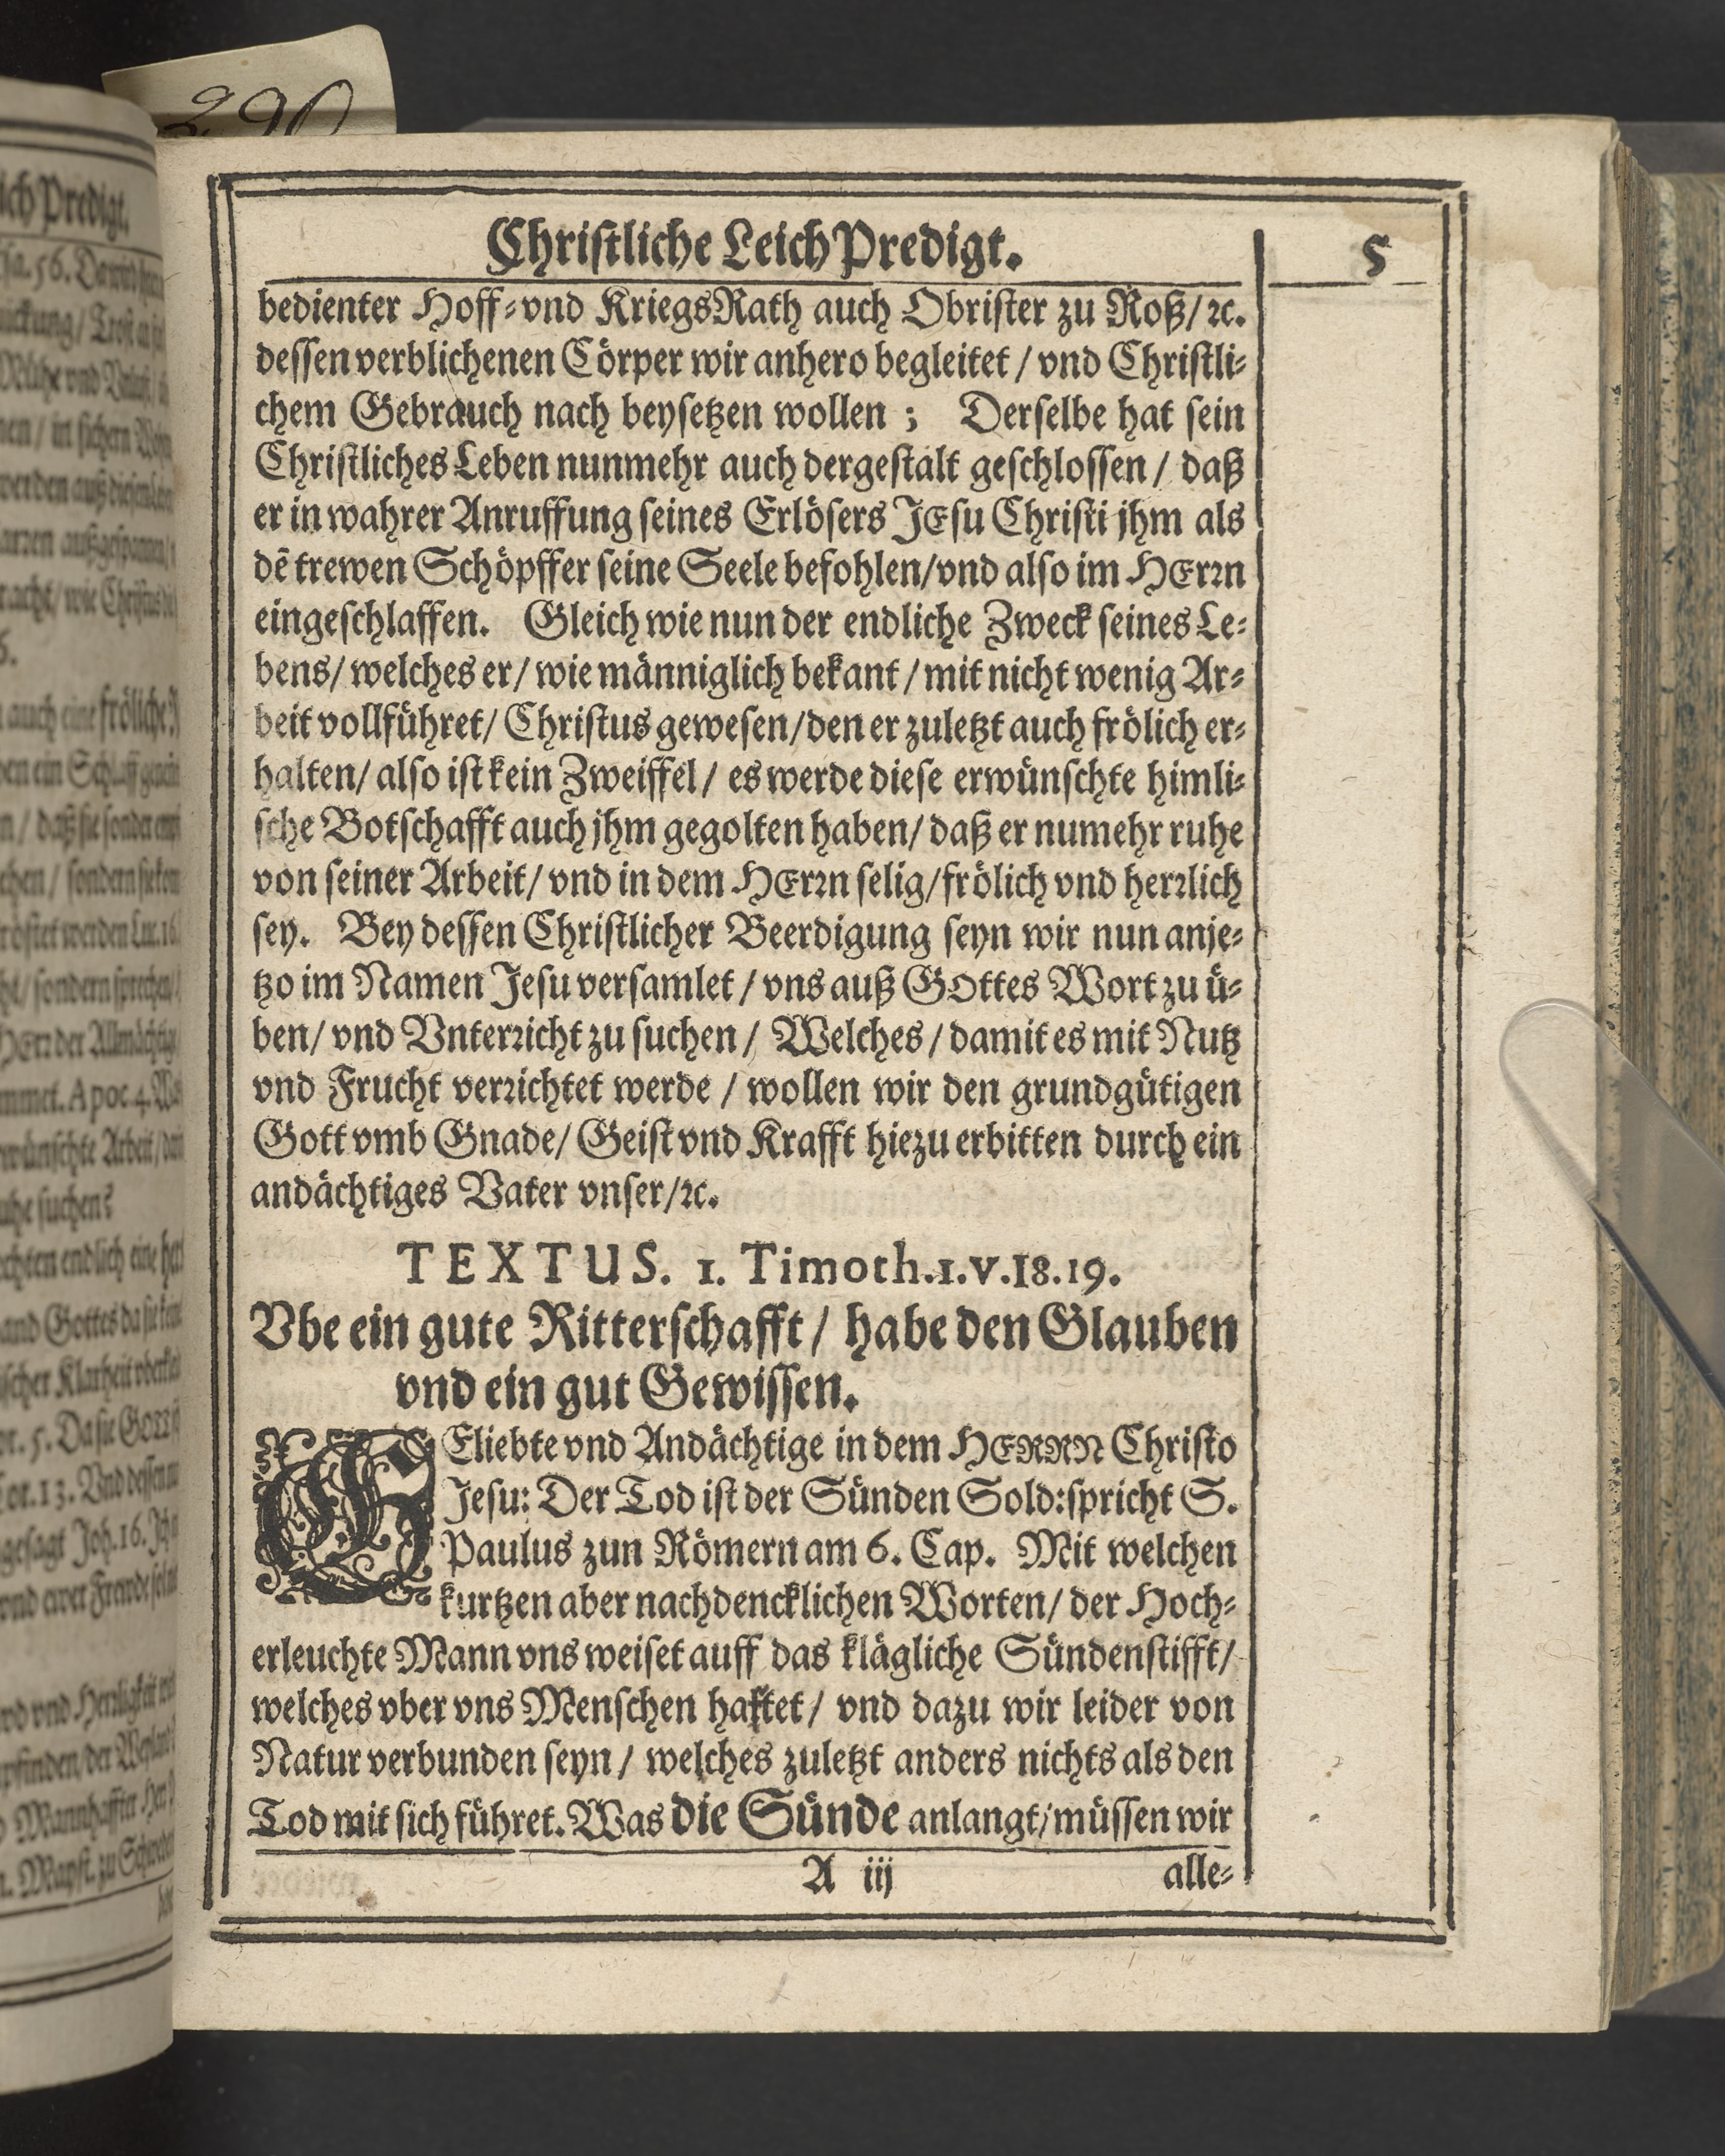 290
Christliche LeichPredigt.
5
bedienter Hoff-vnd KriegsRath auch Obrister zu Roß/ ꝛc.
dessen verblichenen Cörper wir anhero begleitet / vnd Christli-
chem Gebrauch nach beysetzen wollen ; Derselbe hat sein
Christliches Leben nunmehr auch dergestalt geschlossen / daß
er in wahrer Anruffung seines Erlösers JEsu Christi jhm als
dē trewen Schöpffer seine Seele befohlen/vnd also im HErꝛn
eingeschlaffen. Gleich wie nun der endliche Zweck seines Le-
bens/ welches er/ wie männiglich bekant / mit nicht wenig Ar-
beit vollführet/ Christus gewesen/den er zuletzt auch frölich er-
halten/ also ist kein Zweiffel / es werde diese erwünschte himli-
sche Botschafft auch jhm gegolten haben/ daß er numehr ruhe
von seiner Arbeit/ vnd in dem HErꝛn selig/frölich vnd herꝛlich
sey. Bey dessen Christlicher Beerdigung seyn wir nun anje-
tzo im Namen Jesu versamlet / vns auß GOttes Wort zu ü-
ben/ vnd Vnterꝛicht zu suchen / Welches / damit es mit Nutz
vnd Frucht verꝛichtet werde / wollen wir den grundgütigen
Gott vmb Gnade/ Geist vnd Krafft hiezu erbitten durch ein
andächtiges Vater vnser/ꝛc.
TEXTUS. 1. Timoth.1.v.18.19.
Vbe ein gute Ritterschafft / habe den Glauben
vnd ein gut Gewissen.
GEliebte vnd Andächtige in dem HERRN Christo
Jesu: Der Tod ist der Sünden Sold:spricht S.
Paulus zun Römern am 6. Cap. Mit welchen
kurtzen aber nachdencklichen Worten/ der Hoch-
erleuchte Mann vns weiset auff das klägliche Sündenstifft/
welches vber vns Menschen haftet/ vnd dazu wir leider von
Natur verbunden seyn / welches zuletzt anders nichts als den
Tod mit sich führet. Was die Sünde anlangt/müssen wir
A iij
alle-